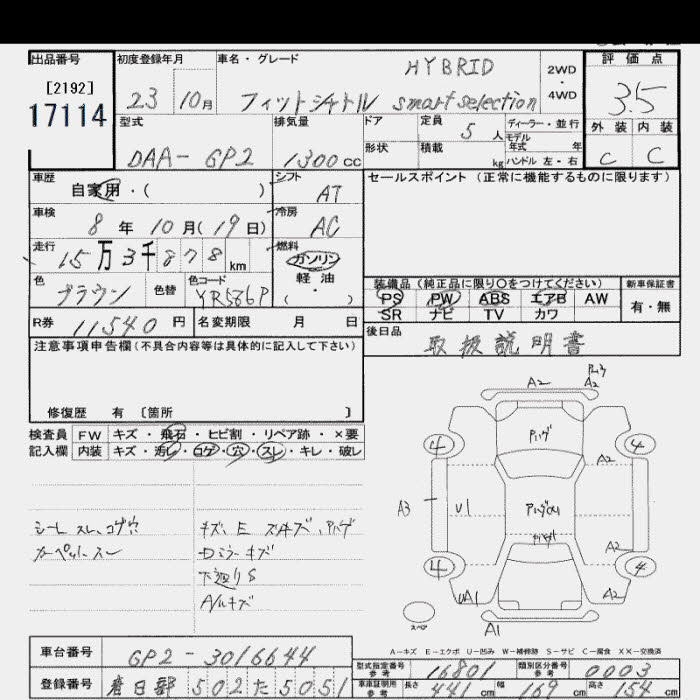 出品番号 初度登録年月 車名・グレード 評価点
[2192] 23 10月 フィットシャトル HYBRID smart selection 2WD・4WD 3.5
17114
型式 排気量 ドア 定員 5人 ディーラー・並行 外装 内装
DAA-GP2 1300cc 形状 積載 kg モデル年式 年 ハンドル 左・右 C C
車歴 自家用・( ) シフト AT セールスポイント (正常に機能するものに限ります)
車検 8年10月(19日) 冷房 AC
走行 15万3千878km 燃料 ガソリン
色 ブラウン 色替 色コード YR586P 軽油 (・)
装備品 (純正品に限り○をつけてください) 新車保証書
PS PW ABS エアB AW 有・無
SR ナビ TV カワ
R券 11540円 名変期限 月 日 後日品
取扱説明書
注意事項申告欄(不具合内容等は具体的に記入して下さい)
修復歴 有 〔箇所 〕
検査員 FW キズ・飛石・ヒビ割・リペア跡・×要
記入欄 内装 キズ・汚れ・コゲ・穴・スレ・キレ・破レ
シート スレ、コゲ穴 キズ、E スリキズ、ハゲ
カーペットスレ ドミラーキズ
下廻りS
A/Wキズ
A2 A2
ハゲ
4 4
A2
A3 U1
A2
4 4
UA1 A2
スペア A1
A-キズ E-エクボ U-凹み W-補修跡 S-サビ C-腐食 XX-交換済
車台番号 GP2-3016644 型式指定番号 参考 16801 類別区分番号 参考 0003
登録番号 春日部 502 た 5051 車庫証明用 参考 長さ 441cm 幅 169cm 高さ 154cm